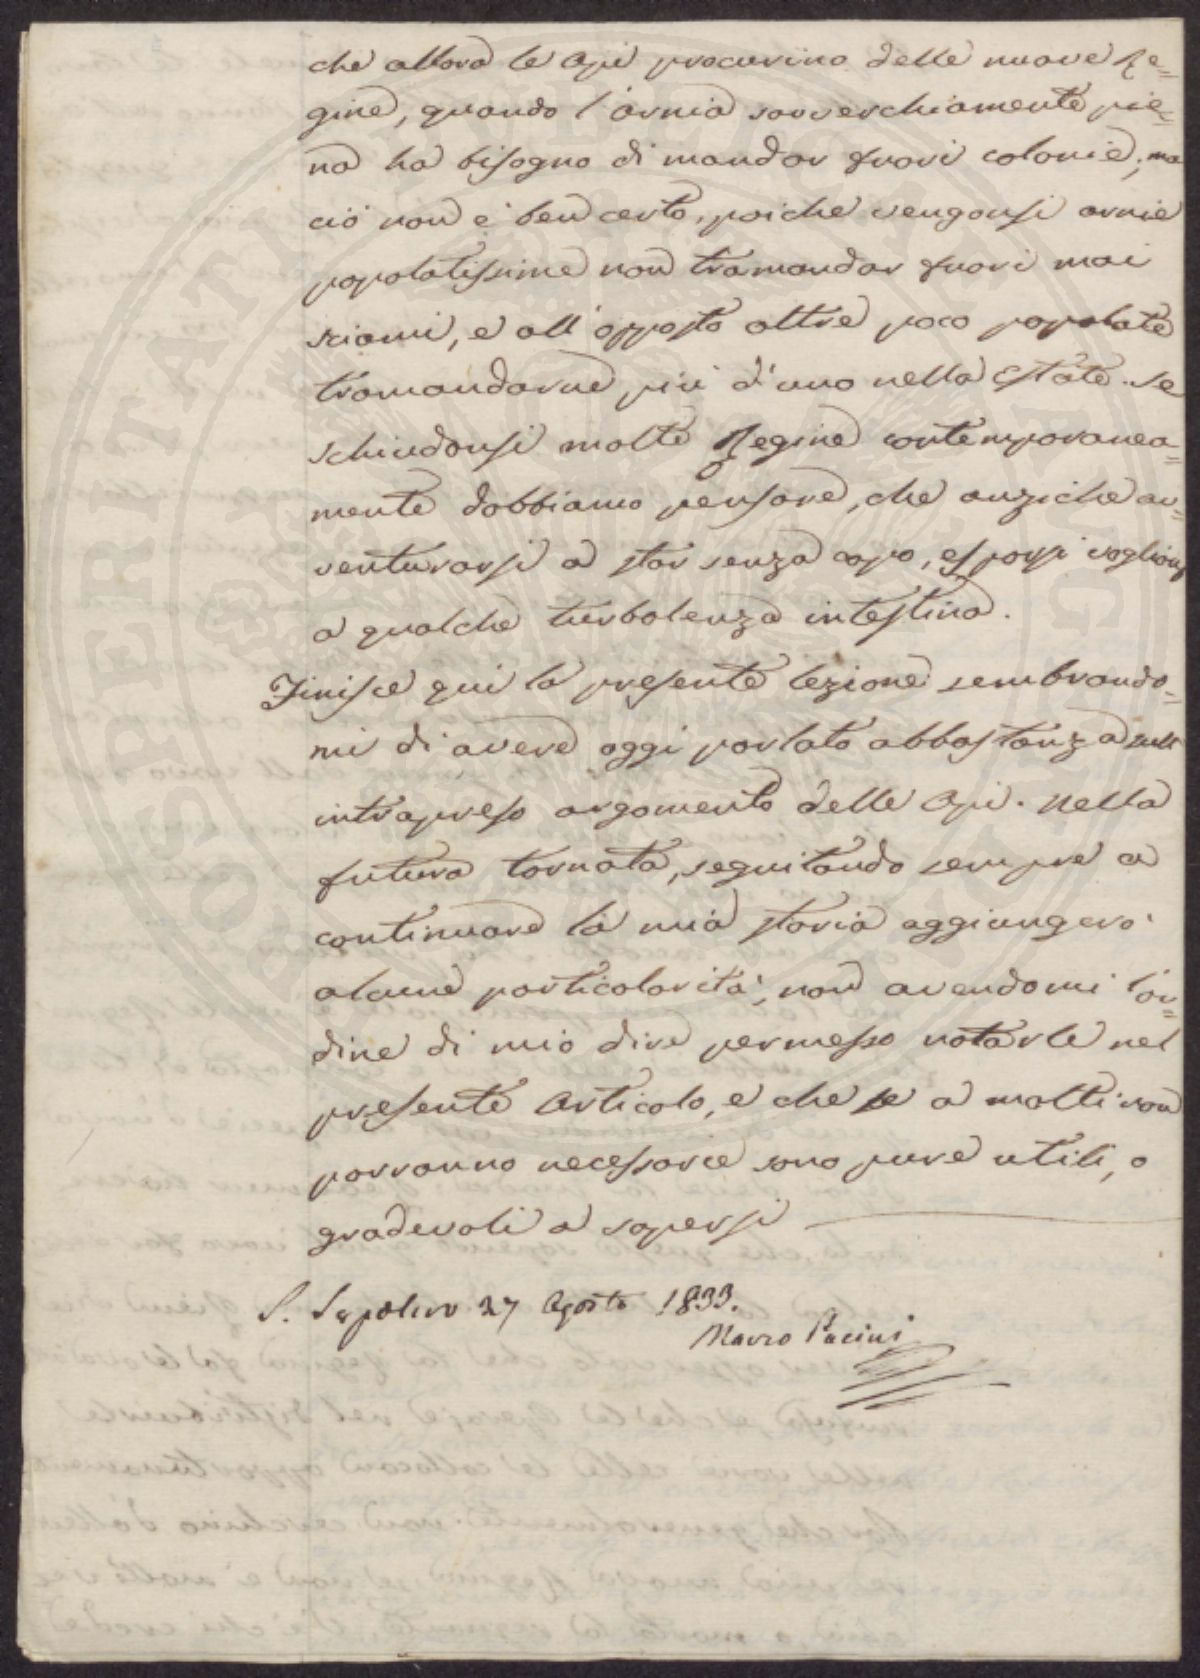 che allora le Api procurino delle nuove Re=
gine, quando l'arnia soverchiamente pie=
na ha bisogno di mandar fuori colonie; ma
ciò non è ben certo, poiche vengonsi arnie
popolatissime non tramandar fuori mai
sciami, e all'opposto altre poco popolate
tramandarne più d'uno nella Estate. Se
schiudonsi molte Regine contemporanea=
mente dobbiamo pensare, che anziche av=
venturarsi a star senza capo, esporsi vogliono
a qualche turbolenza intestina.
Finisce qui la presente lezione sembrando=
mi di avere oggi parlato abbastanza sull
intrapreso argomento delle Api. Nella
futura tornata, seguitando sempre a
continuare la mia storia aggiungerò
alcune particolarità, non avendomi l'or=
dine di mio dire permesso notarle nel
presente Articolo, e che se a molti non
parranno necessarie sono pure utili, o
gradevoli a sapersi
S. Sepolcro 27 Agosto 1833.
Marco Pacini
PROSPERITATI PUBLICAE AUGENDAE